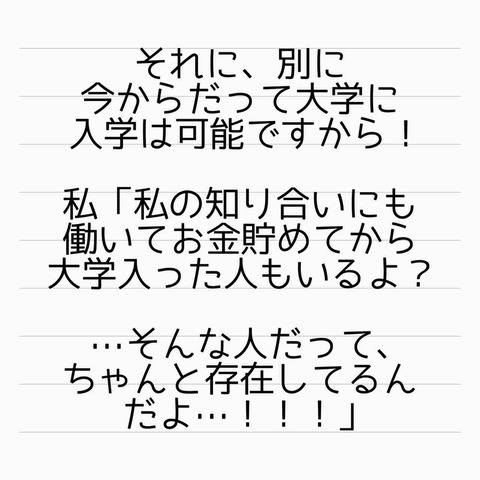 それに、別に
今からだって大学に
入学は可能ですから！
私「私の知り合いにも
働いてお金貯めてから
大学入った人もいるよ？
…そんな人だって、
ちゃんと存在してるん
だよ…！！！」